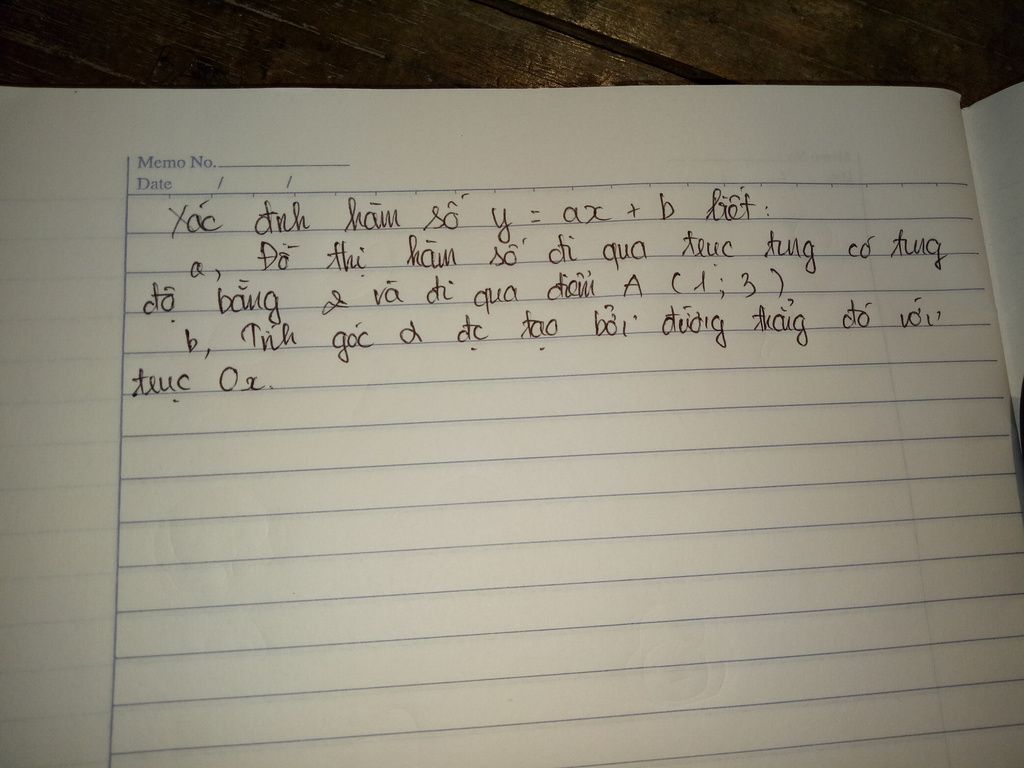 Memo No.
Date / /
Xác định hàm số y = ax + b biết:
a, Đồ thị hàm số đi qua trục tung có tung
độ bằng 2 và đi qua điểm A (1; 3)
b, Tính góc α đc tạo bởi đường thẳng đó với
trục Ox.